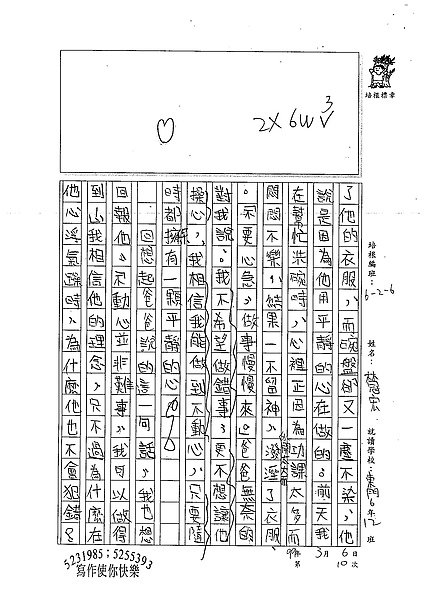 培根標章
2X6W3
培根編班：6-2-6
姓名：
就讀學校：東門6年12班
99年3月6日
第10次
了他的衣服，而碗盤卻又一塵不染，他
說是因為他用平靜的心在做的。前天我
在幫忙洗碗時，心裡正因為功課太多而
悶悶不樂，結果一不留神，潑溼了衣服
。「不要心急，做事慢慢來。」爸爸無奈的
對我說。我不希望做錯事，更不想讓他
操心，我相信我能做到不動心，只要隨
時都擁有一顆平靜的心。
回想起爸爸說的這一句話，我也想
回報他。不動心並非難事，我可以做得
到，我相信他的理念，只不過為什麼在
他心浮氣躁時，為什麼他也不會犯錯？
5231985；5255393
寫作使你快樂